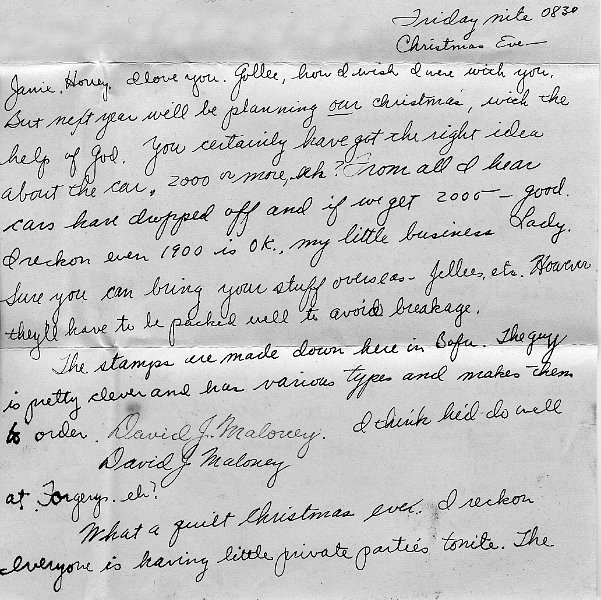 Friday nite 0830
Christmas Eve—
Janie, Honey, I love you. Gollee, how I wish I were with you.
But next year we'll be planning our christmas, with the
help of God. You certainly have got the right idea
about the car, 2000 or more, eh? From all I hear
cars have dropped off and if we get 2000 — good.
I reckon even 1900 is OK., my little business Lady.
Sure you can bring your stuff overseas - Jellees, etc. However
they'll have to be packed well to avoid breakage.
The stamps are made down here in Bofu. The guy
is pretty clever and has various types and makes them
to order. David J. Maloney. I think he'd do well
David J Maloney
at Forgerys. eh?
What a quiet Christmas eve. I reckon
everyone is having little private parties tonite. The